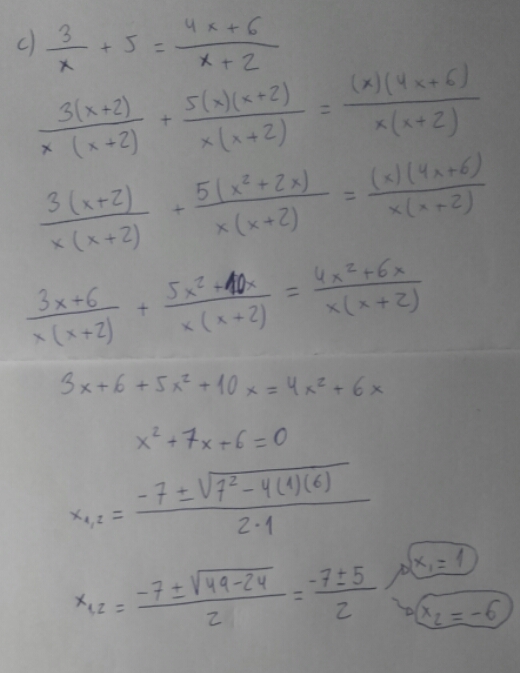 c) 3/x + 5 = (4x+6)/(x+2)
3(x+2)/(x (x+2)) + 5(x)(x+2)/(x(x+2)) = (x)(4x+6)/(x(x+2))
3(x+2)/(x(x+2)) + 5(x²+2x)/(x(x+2)) = (x)(4x+6)/(x(x+2))
(3x+6)/(x(x+2)) + (5x²+10x)/(x(x+2)) = (4x²+6x)/(x(x+2))
3x+6+5x²+10x=4x²+6x
x²+7x+6=0
x₁,₂ = (-7±√(7²-4(1)(6)))/(2·1)
x₁,₂ = (-7±√(49-24))/2 = (-7±5)/2
x₁=1
x₂=-6